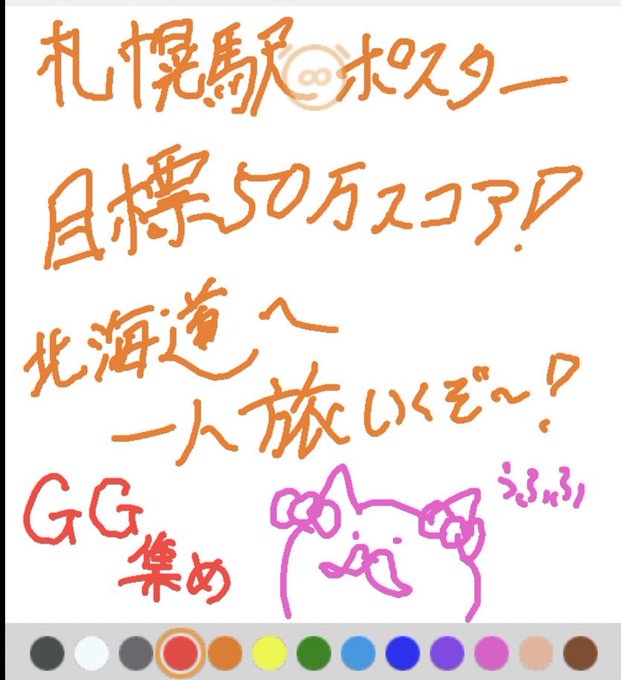 札幌駅ポスター
目標50万スコア!
北海道へ
一人旅いくぞ〜!
GG
集め
うふふ